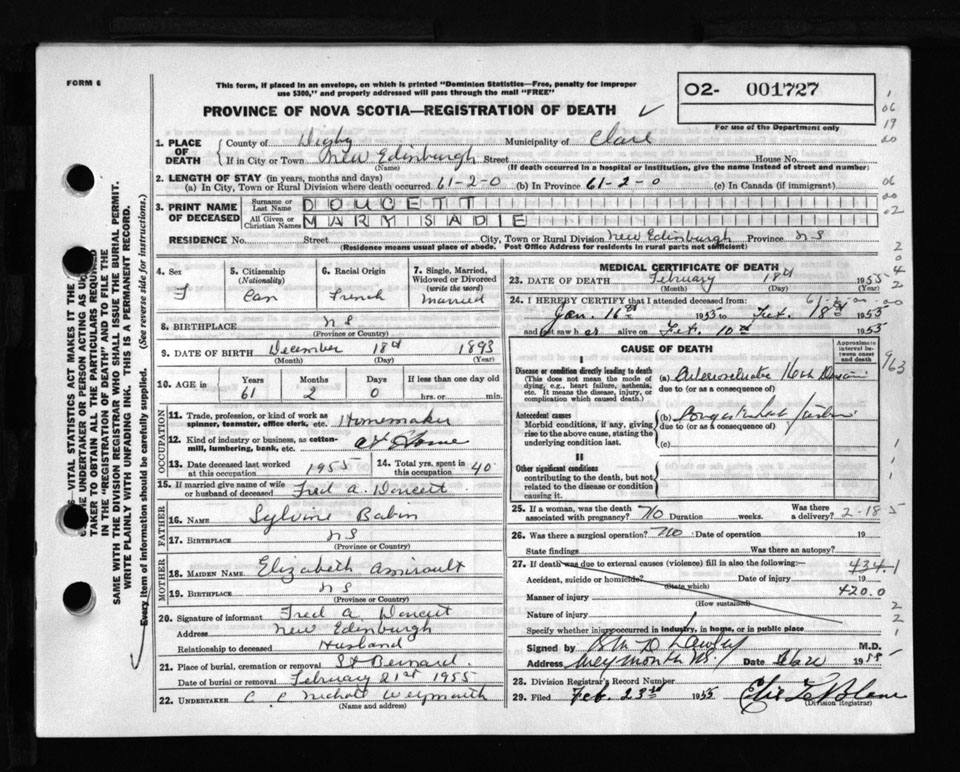 FORM 6
This form, if placed in an envelope, on which is printed "Dominion Statistics—Free, penalty for improper
use $300," and properly addressed will pass through the mail "FREE"
PROVINCE OF NOVA SCOTIA—REGISTRATION OF DEATH ✓
O2- 001727
For use of the Department only
1. PLACE OF DEATH
County of Digby Municipality of Clare
If in City or Town New Edinburgh Street House No.
(Name) (If death occurred in a hospital or institution, give the name instead of street and number)
2. LENGTH OF STAY (in years, months and days)
(a) In City, Town or Rural Division where death occurred 61-2-0 (b) In Province 61-2-0 (c) In Canada (if immigrant)
3. PRINT NAME OF DECEASED
Surname or Last Name DOUCETT
All Given or Christian Names MARY SADIE
RESIDENCE No. Street City, Town or Rural Division New Edinburgh Province NS
(Residence means usual place of abode. Post Office Address for residents in rural parts not sufficient)
4. Sex F
5. Citizenship (Nationality) Can
6. Racial Origin French
7. Single, Married, Widowed or Divorced (write the word) Married
8. BIRTHPLACE NS
(Province or Country)
9. DATE OF BIRTH December 18th 1893
(Month) (Day) (Year)
10. AGE in Years 61 Months 2 Days 0 If less than one day old hrs. or min.
OCCUPATION
11. Trade, profession, or kind of work as spinner, teamster, office clerk, etc. Homemaker
12. Kind of industry or business, as cotton-mill, lumbering, bank, etc. at Home
13. Date deceased last worked at this occupation 1955
14. Total yrs. spent in this occupation 40
15. If married give name of wife or husband of deceased Fred A. Doucett
FATHER
16. NAME Sylvine Babin
17. BIRTHPLACE NS
(Province or Country)
MOTHER
18. MAIDEN NAME Elizabeth Amirault
19. BIRTHPLACE NS
(Province or Country)
20. Signature of informant Fred A. Doucett
Address New Edinburgh
Relationship to deceased Husband
21. Place of burial, cremation or removal St Bernard
Date of burial or removal February 21st 1955
22. UNDERTAKER C C Nichols Weymouth
(Name and address)
MEDICAL CERTIFICATE OF DEATH
23. DATE OF DEATH February 18th 1955
(Month) (Day) (Year)
24. I HEREBY CERTIFY that I attended deceased from:
Jan. 16th 1953 to Feb. 18th 1955
and last saw her alive on Feb. 10th 1955
CAUSE OF DEATH
Approximate interval between onset and death
I
Disease or condition directly leading to death
(This does not mean the mode of dying, e.g., heart failure, asthenia, etc. It means the disease, injury, or complication which caused death.)
(a)
due to (or as a consequence of)
Antecedent causes
Morbid conditions, if any, giving rise to the above cause, stating the underlying condition last.
(b)
due to (or as a consequence of)
(c)
II
Other significant conditions
contributing to the death, but not related to the disease or condition causing it.
25. If a woman, was the death associated with pregnancy? No Duration weeks. Was there a delivery? 2-18 5
26. Was there a surgical operation? No Date of operation 19
State findings Was there an autopsy?
27. If death was due to external causes (violence) fill in also the following:— 434.1
Accident, suicide or homicide? Date of injury 19
(State which)
Manner of injury 420.0
(How sustained)
Nature of injury
Specify whether injury occurred in industry, in home, or in public place
Signed by M.D.
Address Weymouth NS. Date 1955
28. Division Registrar's Record Number
29. Filed Feb. 23rd 1955
(Division Registrar)
VITAL STATISTICS ACT MAKES IT THE
UNDERTAKER OR PERSON ACTING AS
TAKER TO OBTAIN ALL THE PARTICULARS REQUIRED
IN THE "REGISTRATION OF DEATH" AND TO FILE THE
SAME WITH THE DIVISION REGISTRAR WHO SHALL ISSUE THE BURIAL PERMIT.
WRITE PLAINLY WITH UNFADING INK. THIS IS A PERMANENT RECORD.
Every item of information should be carefully supplied. (See reverse side for instructions.)